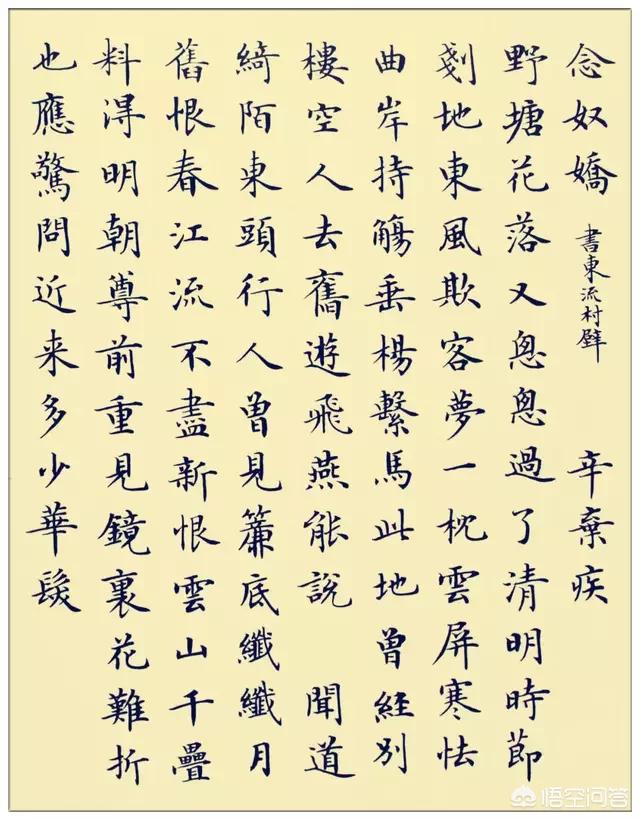 念奴嬌 書東流村壁 辛棄疾
野塘花落又悤悤過了清明時節
剗地東風欺客夢一枕雲屏寒怯
曲岸持觴垂楊繫馬此地曾經別
樓空人去舊遊飛燕能說 聞道
綺陌東頭行人曾見簾底纖纖月
舊恨春江流不盡新恨雲山千疊
料得明朝尊前重見鏡裏花難折
也應驚問近来多少華髮
悟空问答